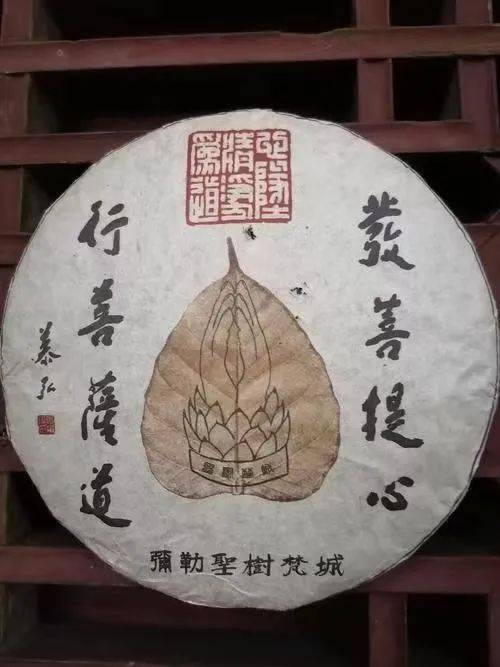 發菩提心
行菩薩道
慕弘
彌勒聖樹梵城